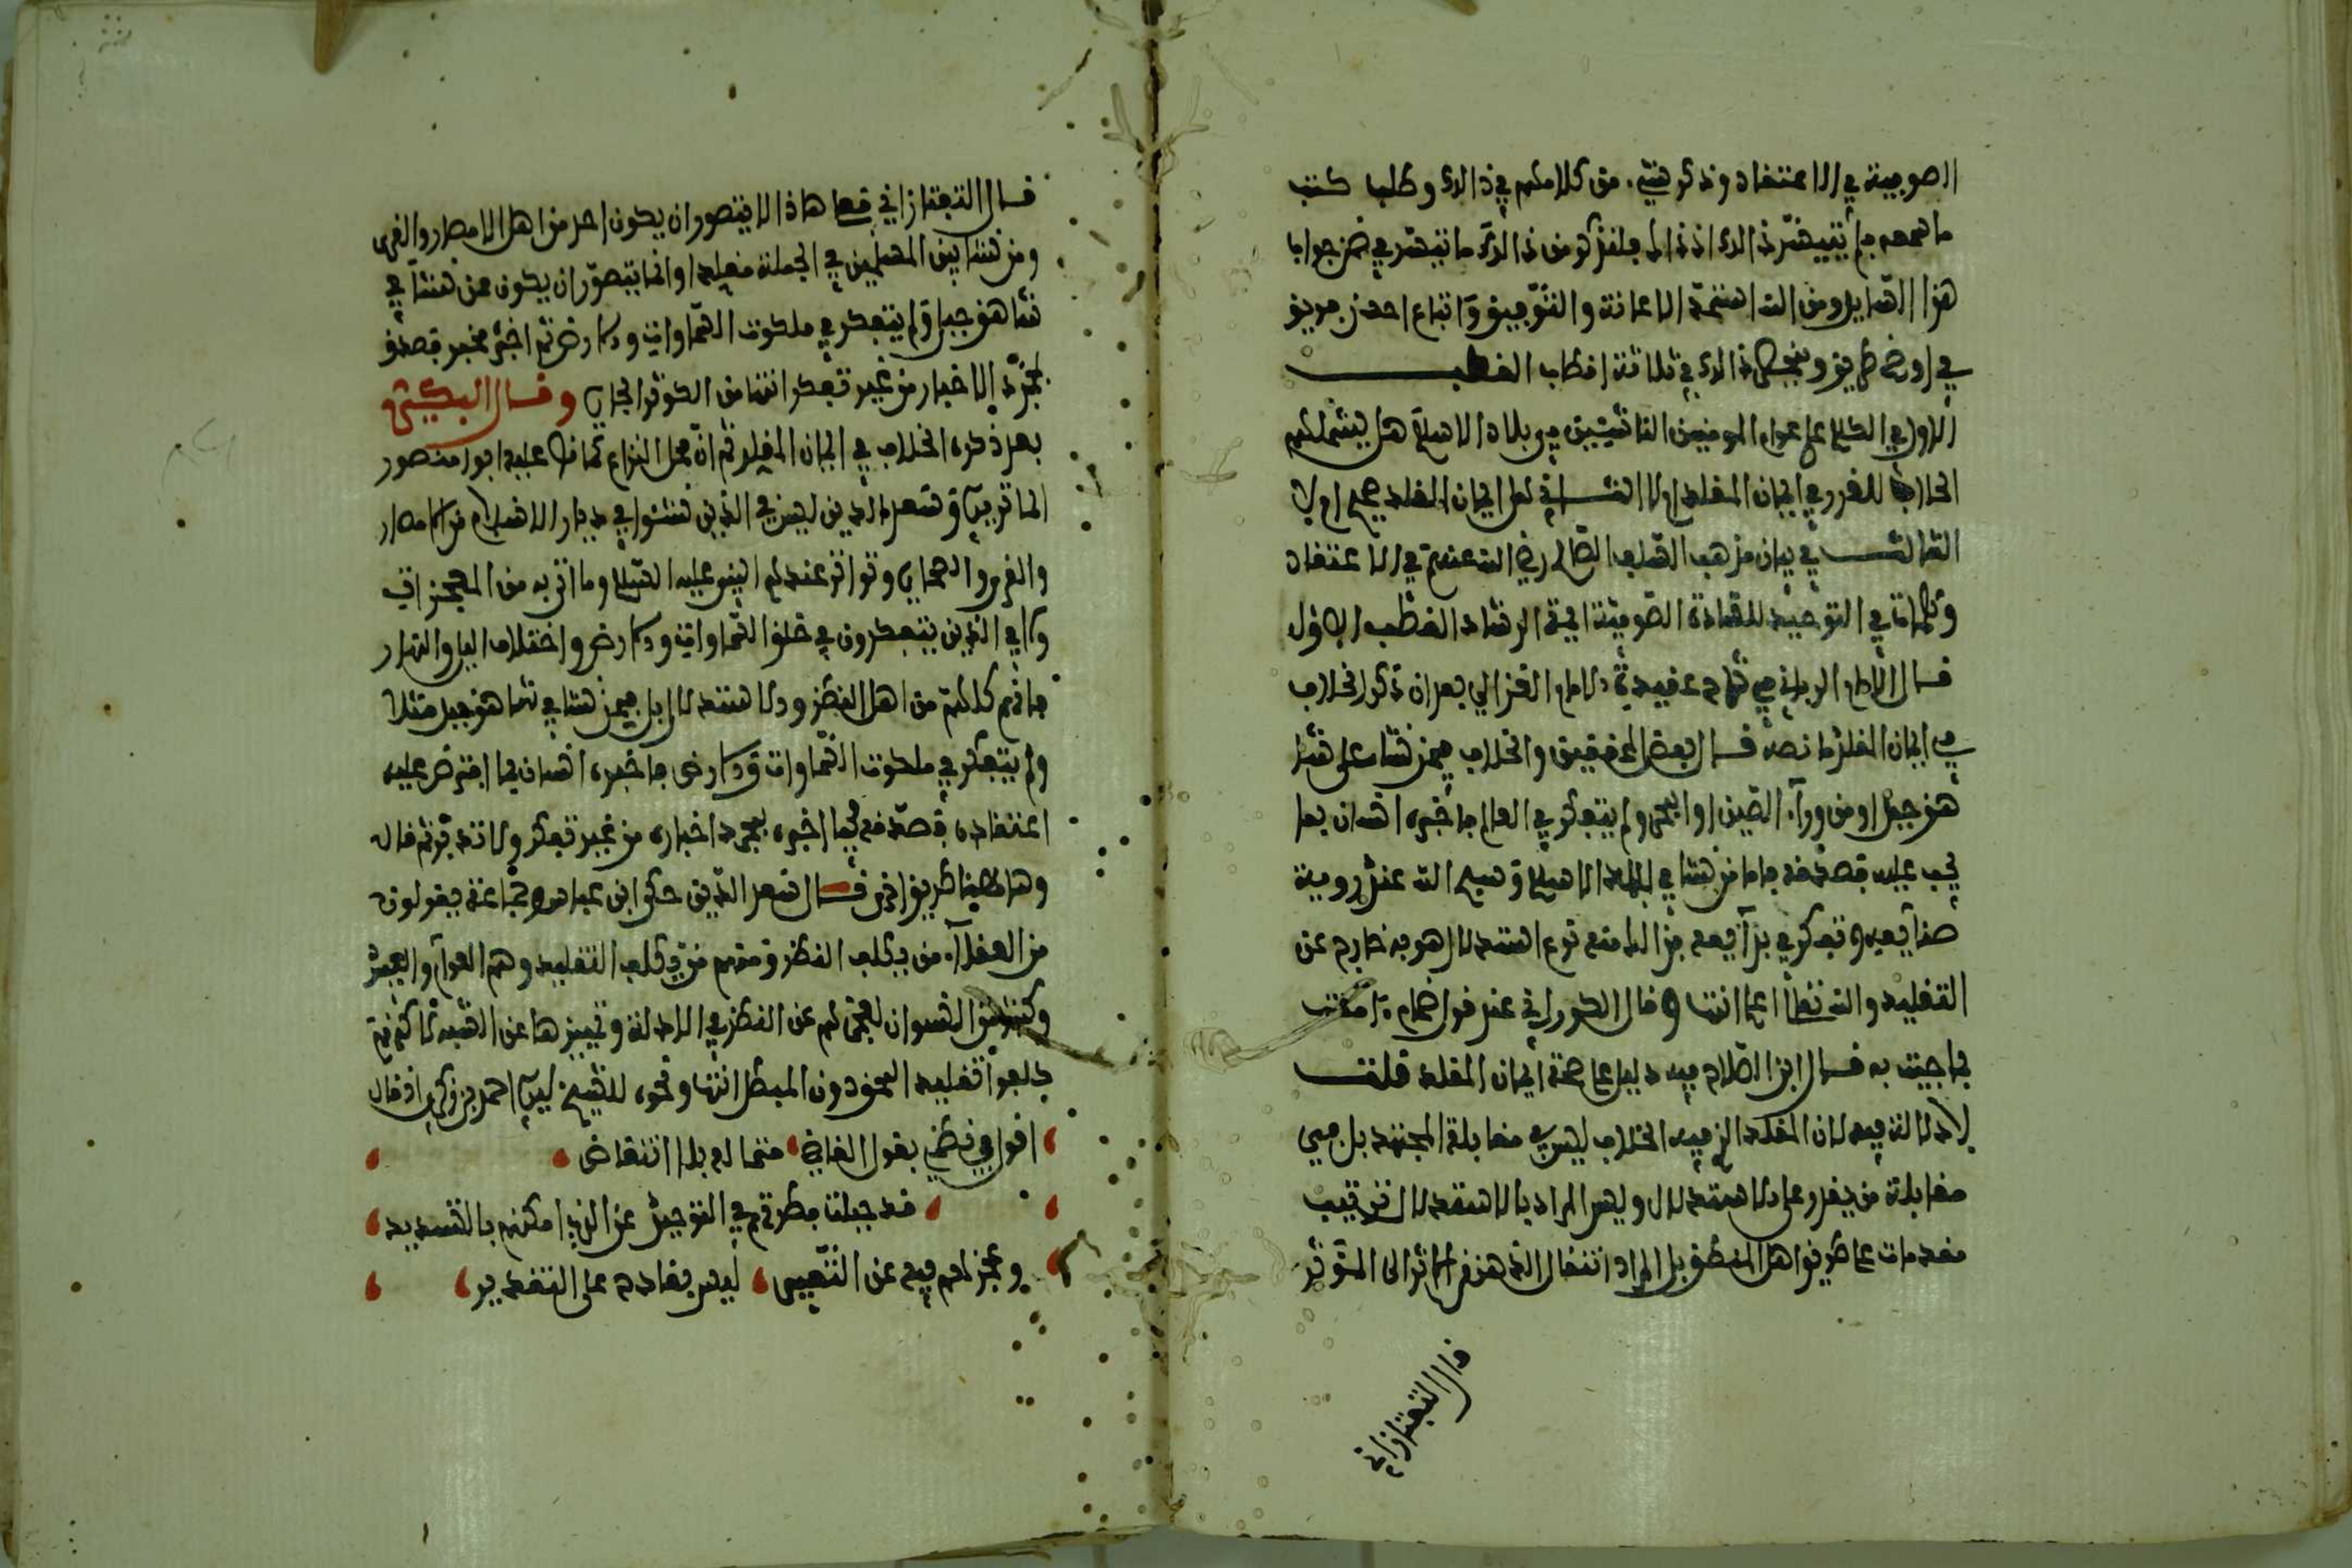 الصوفية في الاعتقاد وذكر شيء من كلامهم في ذلك وطلب كتب
ما همعم ما تيسر ذلك اذ ذاك فلنذكر من ذلك ما تيسر في ضمن جوابا
هذا السايل ومن الله استمد الاعانة والتوفيق واتباع احسن فريق
في اوضح طريق وينحصر ذلك في ثلاثة اقطاب القطب
الاول في الكلام على عوام المومنين الناشئين في بلاد الاسلام هل يشملهم
الخلاف المقرر في ايمان المقلد اولا الثاني هل ايمان المقلد صحيح اولا
الثالث في بيان مذهب السلف الصالح رضي الله عنهم في الاعتقاد
وكلمات في التوحيد للسادة الصوفية ايمة الرشاد القطب الاول
قال الامام في شرح عقيدة الامام الغزالي بعد ان ذكر الخلاف
في ايمان المقلد ما نصه قال بعض المحققين والخلاف فيمن نشا على شا
هق جبل او من ورآء الصين او البحر ولم يتفكر في العالم فاخبره انسان بما
يجب عليه فصدقه فاما من نشا في بلاد الاسلام وسبح الله عند روية
صنآيعه وتفكر في بدآيعه فذا معه نوع استدلال هو به خارج عن
التقليد والله تعالى اعلم انتهى وقال الكوراني عند قول ضمام ءامنت
بما جيت به قال ابن الصلاح فيه دليل على صحة ايمان المقلد قلت
لا دلالة فيه لان المقلد الذي فيه الخلاف ليس في مقابلة المجتهد بل في
مقابلة من يقدر على الاستدلال وليس المراد بالاستدلال ترتيب
مقدمات على طريق اهل المنطق بل المراد انتقال الذهن من الاثر الى المؤثر
قال التفتازاني
قال التفتازاني فعلى هاذا لا يتصور ان يكون احد من اهل الامصار والقرى
ومن نشا بين المسلمين في الجملة مقلدا وانما يتصور ان يكون ممن نشا في
شاهق جبل ولم يتفكر في ملكوت السماوات والارض ثم اخبره مخبر فصدق
بمجرد الاخبار من غير تفكر انتهى من الكوثر الجاري وقال البيكشي
بعد ذكره الخلاف في ايمان المقلد ثم ان محل النزاع كما قال عليه ابو منصور
الماتريدي وسعد الدين ليس في الذين نشئوا في ديار الاسلام من الامصار
والقرى والصحاري وتواتر عندهم النبي عليه السلام وما اتى به من المعجزات
ولا في الذين يتفكرون في خلق السماوات والارض واختلاف الليل والنهار
فانهم كلهم من اهل النظر والاستدلال بل فيمن نشا في شاهق جبل مثلا
ولم يتفكر في ملكوت السماوات والارض فاخبره انسان بما افترض عليه
اعتقاده فصدقه فيما اخبره بمجرد اخباره من غير تفكر ولا تدبر ثم قال
وهاهنا طريق اخر قال سعد الدين حكى ابن عباس وجماعة يقولون
من العقلآء من يكلف النظر ومنهم من يكلف التقليد وهم العوام والعبيد
وكثير من النسوان لعجزهم عن النظر في الادلة وتمييزها عن الشبه لكنهم
كلفوا تقليد المحق دون المبطل انتهى ونحوه للشيخ احمد بن زكري اذ قال
اقول في نظم بقول القاضي متما له بلا انتقاض
قد جبلت فطرتهم في التوحيد عن الذي امكنهم بالتسديد
وعجزهم فيه عن التعبير ليس بقادح على التقدير